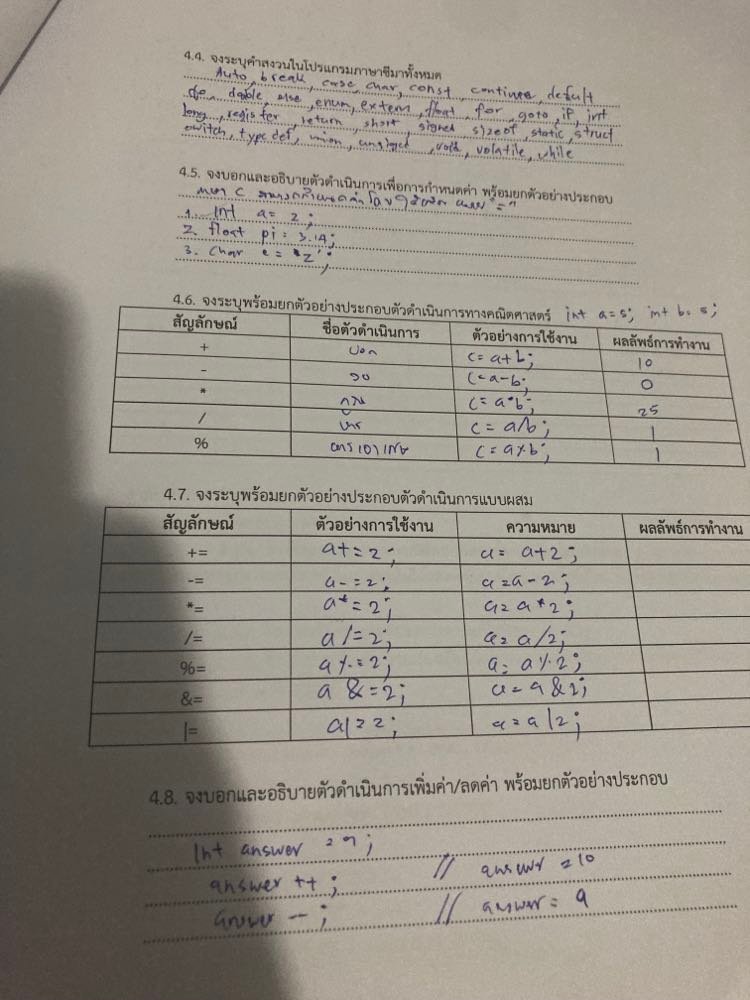 4.4. จงระบุคำสงวนในโปรแกรมภาษาซีมาทั้งหมด
Auto, break, case, char, const, continue, default
do, double, else, enum, extern, float, for, goto, if, int
long, register, return, short, signed sizeof, static, struct
switch, typedef, union, unsigned, void, volatile, while
4.5. จงบอกและอธิบายตัวดำเนินการเพื่อการกำหนดค่า พร้อมยกตัวอย่างประกอบ
ภาษา C "="
1. Int a = 2;
2. float pi = 3.14;
3. Char e = 'z';
4.6. จงระบุพร้อมยกตัวอย่างประกอบตัวดำเนินการทางคณิตศาสตร์ int a=5; int b=5;
สัญลักษณ์ ชื่อตัวดำเนินการ ตัวอย่างการใช้งาน ผลลัพธ์การทำงาน
+ บวก c=a+b; 10
- ลบ c=a-b; 0
* คูณ c=a*b; 25
/ หาร c=a/b; 1
% หารเอาเศษ c=a%b; 1
4.7. จงระบุพร้อมยกตัวอย่างประกอบตัวดำเนินการแบบผสม
สัญลักษณ์ ตัวอย่างการใช้งาน ความหมาย ผลลัพธ์การทำงาน
+= a+=2; a=a+2;
-= a-=2; a=a-2;
*= a*=2; a=a*2;
/= a/=2; a=a/2;
%= a%=2; a=a%2;
&= a&=2; a=a&2;
|= a|=2; a=a|2;
4.8. จงบอกและอธิบายตัวดำเนินการเพิ่มค่า/ลดค่า พร้อมยกตัวอย่างประกอบ
Int answer = 9;
answer ++; // answer = 10
answer --; // answer = 9